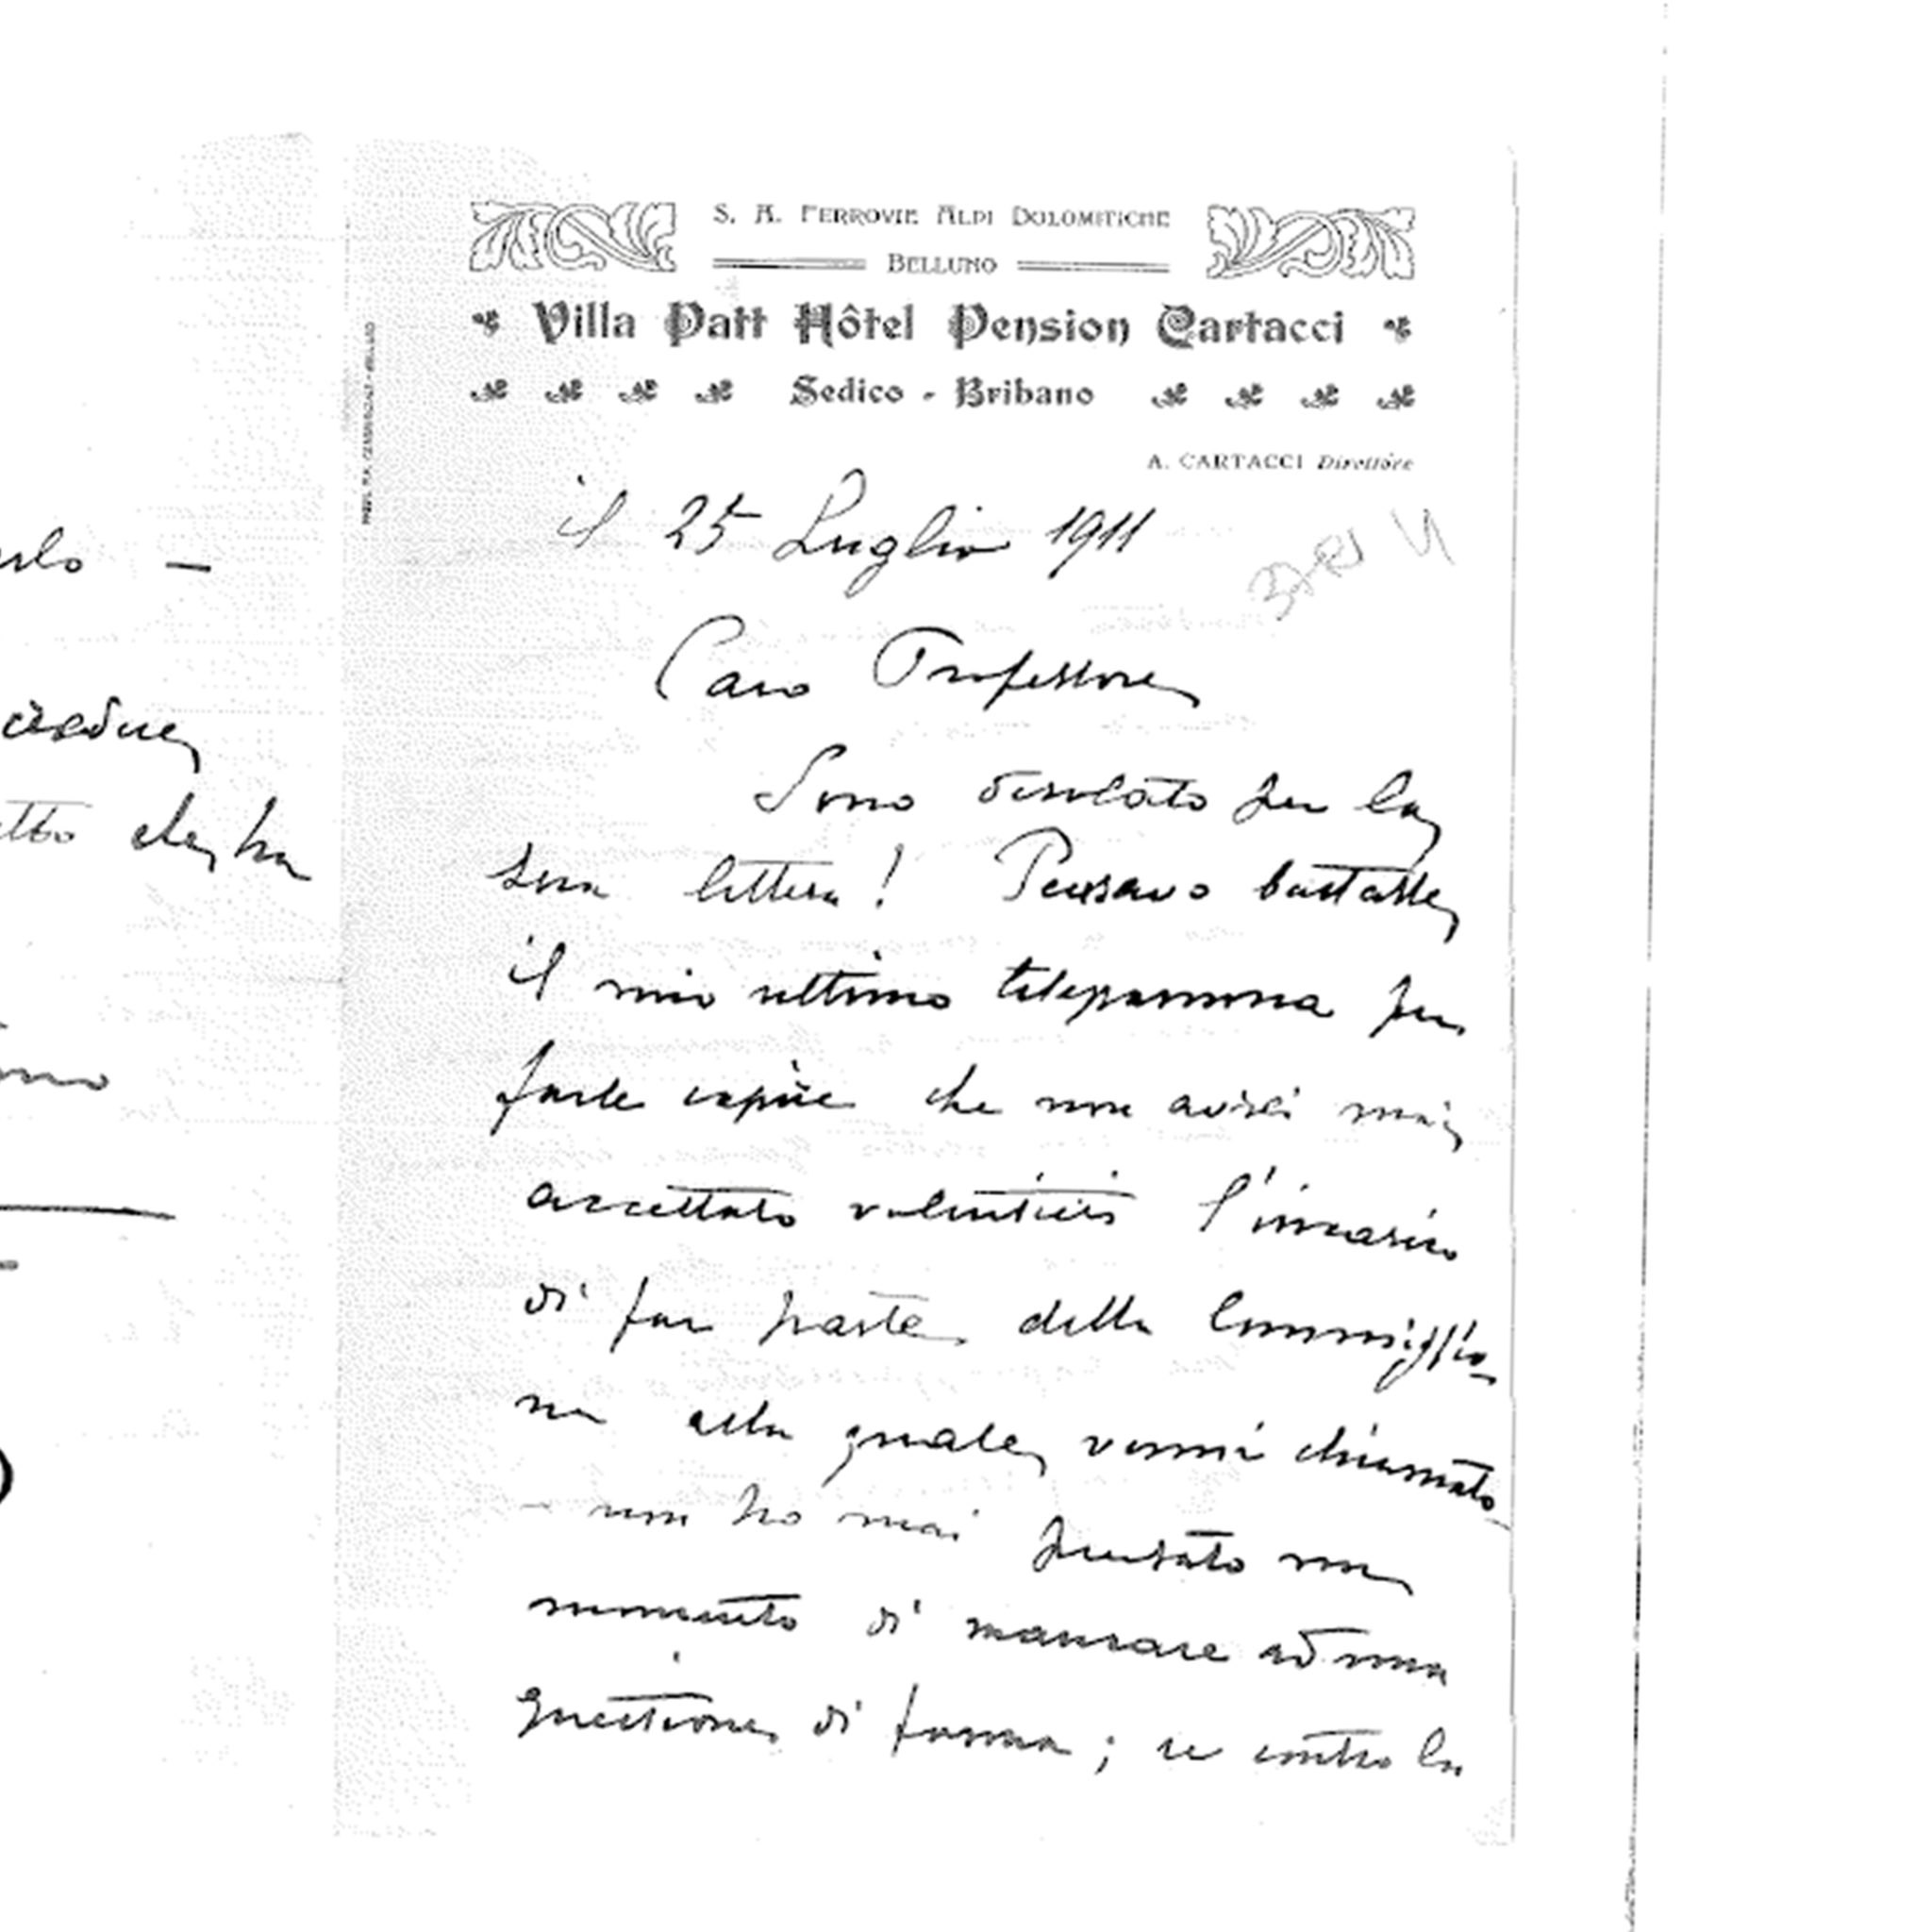 S. A. FERROVIE ALPI DOLOMITICHE
BELLUNO
Villa Patt Hôtel Pension Cartacci
Sedico - Bribano
A. CARTACCI Direttore
il 25 Luglio 1911
Caro Professore
Sono desolato per la
sua lettera! Pensavo bastasse
il mio ultimo telegramma per
farle capire che non avrei mai
accettato volentieri l'incarico
di far parte della Commissio-
ne alla quale venni chiamato
- non ho mai pensato un
momento di mancare ad una
questione di forma; se contro la
che ha